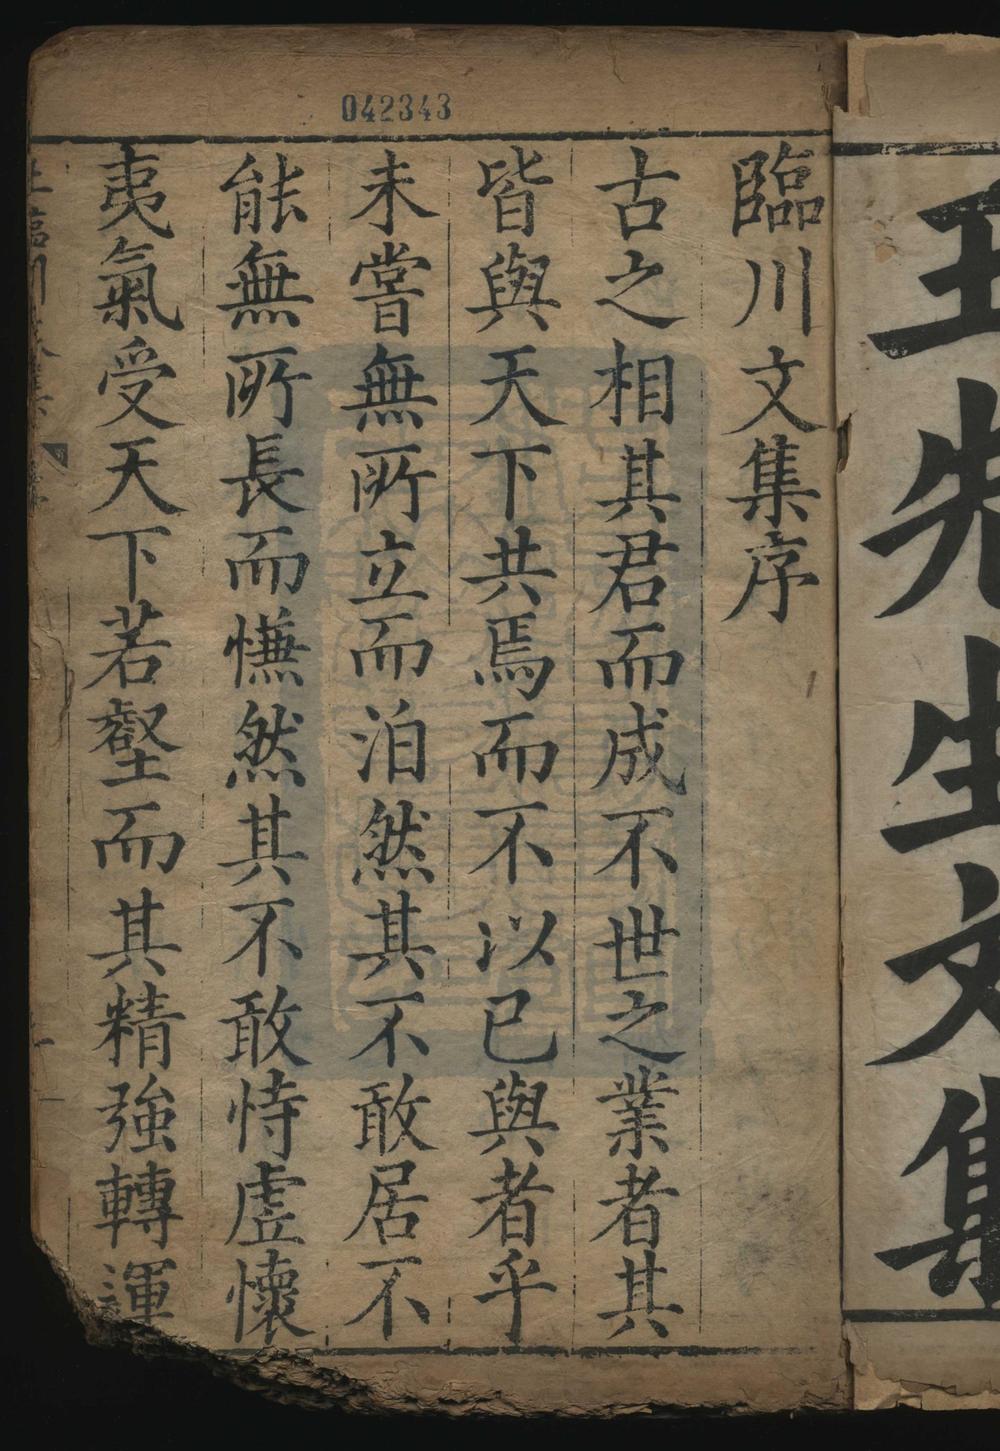 王先生文集
042343
臨川文集序
古之相其君而成不世之業者其
皆與天下共焉而不以已與者乎
未嘗無所立而泊然其不敢居不
能無所長而慊然其不敢恃虛懷
夷氣受天下若壑而其精強轉運